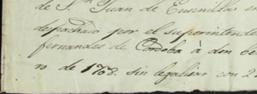 de S.ⁿ Juan de
despachado por el Superintende
fernandes de Cordoba à don
ro de 1768. sin legalisar con 2